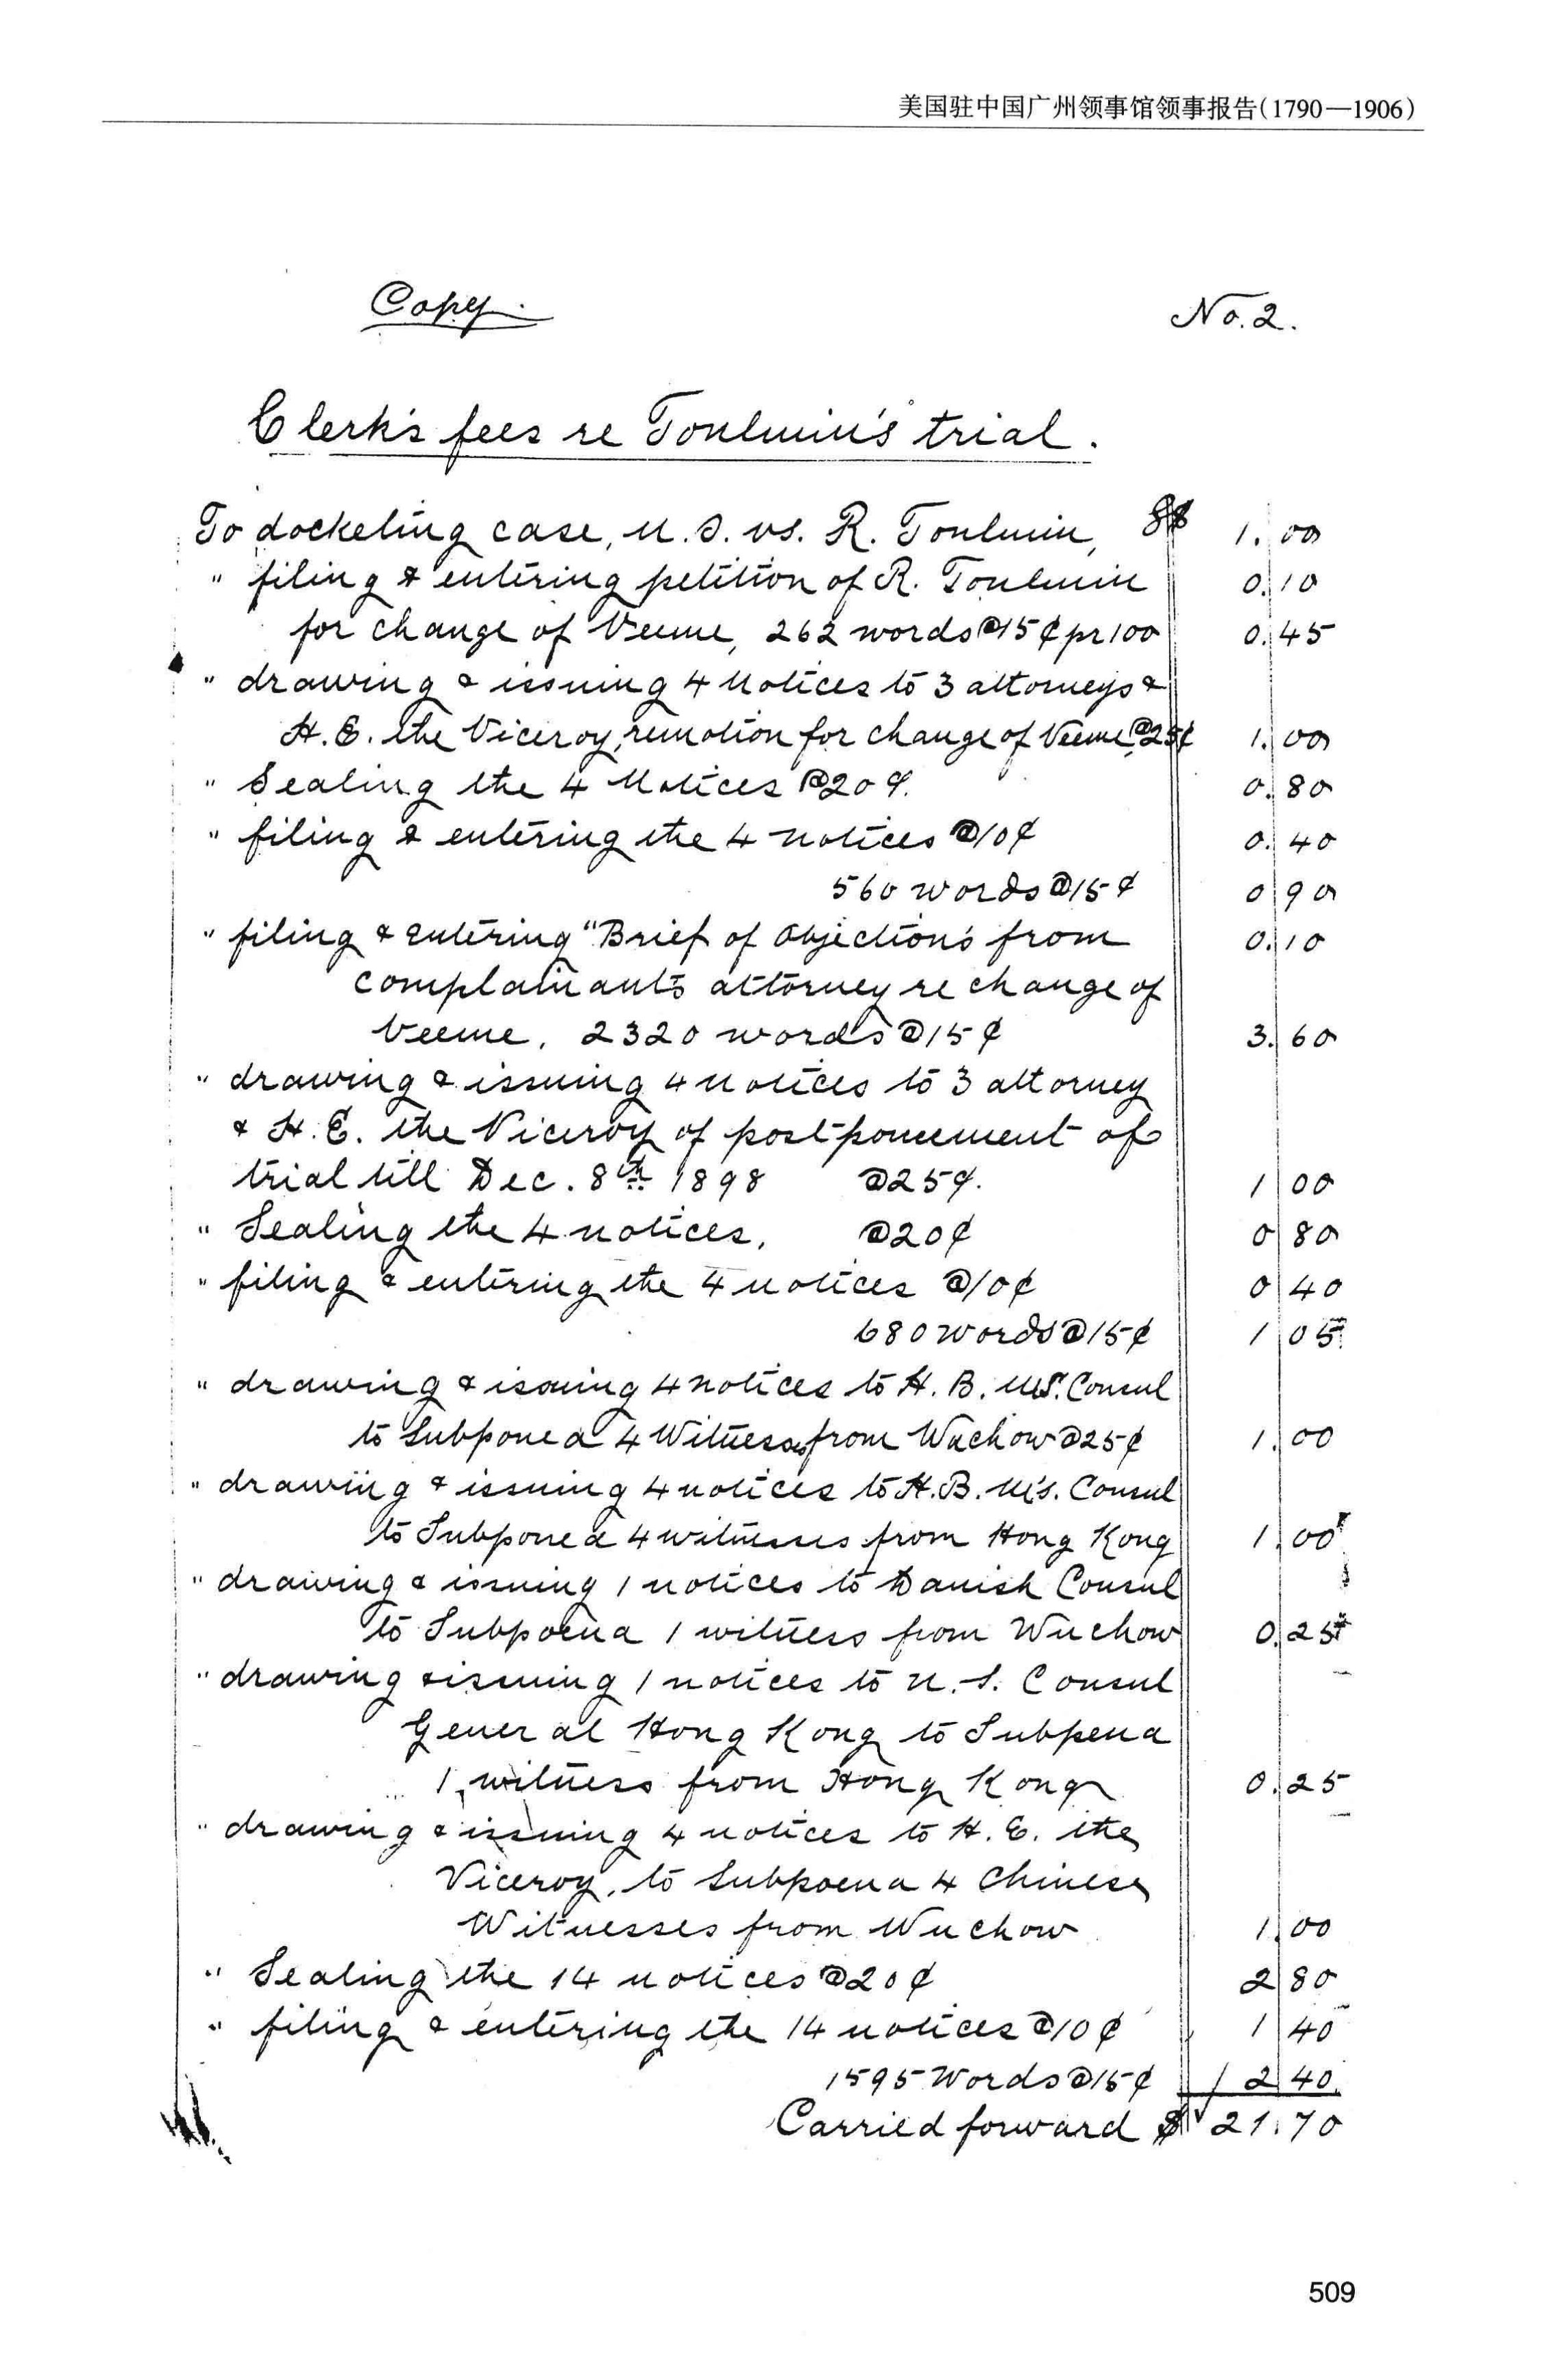 美国驻中国广州领事馆领事报告(1790—1906)
Copy. No. 2.
Clerk's fees re Toulmin's trial.
To docketing case, U.S. vs. R. Toulmin, $ 1.00
" filing & entering petition of R. Toulmin 0.10
for change of Venue, 262 words @15¢ pr 100 0.45
" drawing & issuing 4 Notices to 3 attorneys &
H. E. the Viceroy, re motion for change of Venue, @25¢ 1.00
" Sealing the 4 Notices @20¢. 0.80
" filing & entering the 4 notices @10¢ 0.40
560 words @15¢ 0 90
" filing & entering "Brief of Objections from 0.10
complainants attorney re change of
Venue, 2320 words @15¢ 3.60
" drawing & issuing 4 notices to 3 attorney
& H. E. the Viceroy of postponement of
trial till Dec. 8th 1898 @25¢. 1 00
" Sealing the 4 notices, @20¢ 0 80
" filing & entering the 4 notices @10¢ 0 40
680 words @15¢ 1 05
" drawing & issuing 4 notices to H. B. M's. Consul
to Subponea 4 Witnesses from Wuchow @25¢ 1.00
" drawing & issuing 4 notices to H. B. M's. Consul
to Subponea 4 witnesses from Hong Kong 1.00
" drawing & issuing 1 notices to Danish Consul
to Subpoena 1 witness from Wuchow 0.25
" drawing & issuing 1 notices to U. S. Consul
General Hong Kong to Subpena
1 witness from Hong Kong 0.25
" drawing & issuing 4 notices to H. E. the
Viceroy, to Subpoena 4 Chinese
Witnesses from Wuchow 1.00
" Sealing the 14 notices @20¢ 2 80
" filing & entering the 14 notices @10¢ 1 40
1595 Words @15¢ 2 40
Carried forward $ 21.70
509